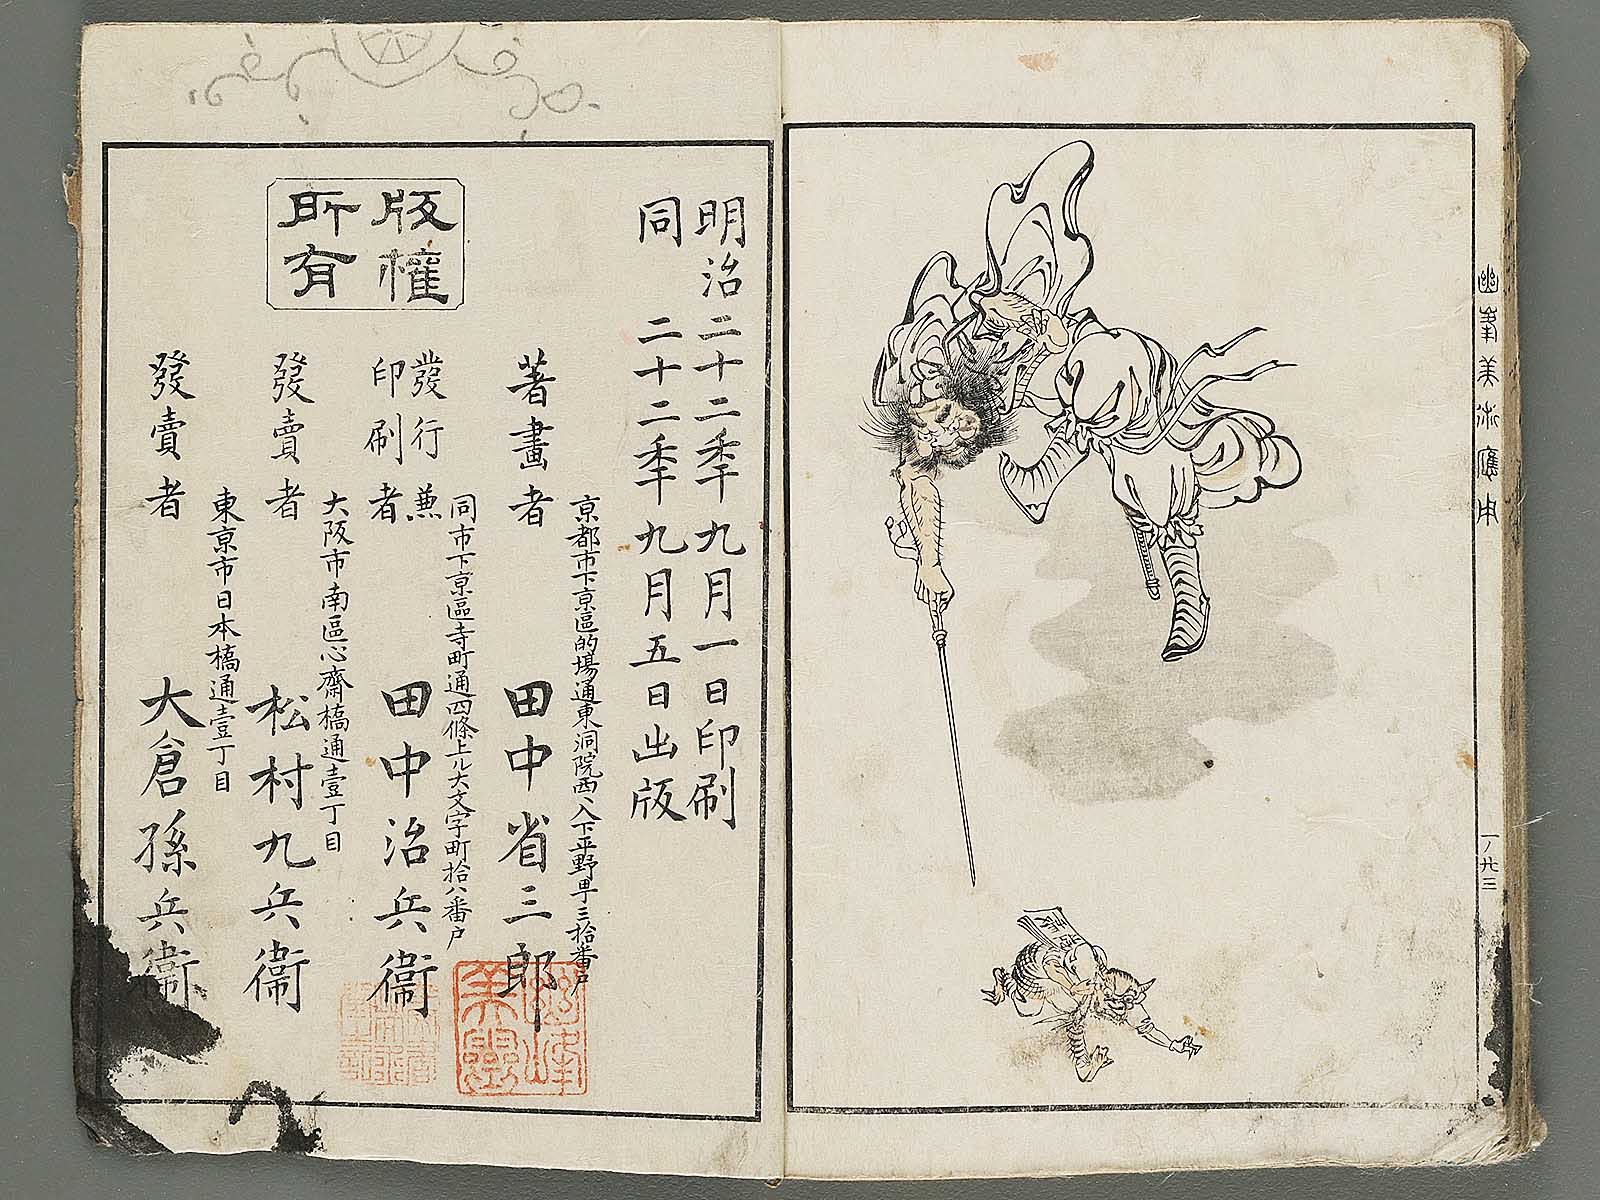 幽峯美術應用
一ノ廿三
明治二十二年九月一日印刷
同二十二年九月五日出版
京都市下京區的場通東洞院西ヘ入下平野町三拾番戸
著畫者 田中省三郎
同市下京區寺町通四條上ル大文字町拾八番戸
發行兼印刷者 田中治兵衞
大阪市南區心齋橋通壹丁目
發賣者 松村九兵衞
東京市日本橋通壹丁目
發賣者 大倉孫兵衞
版權所有